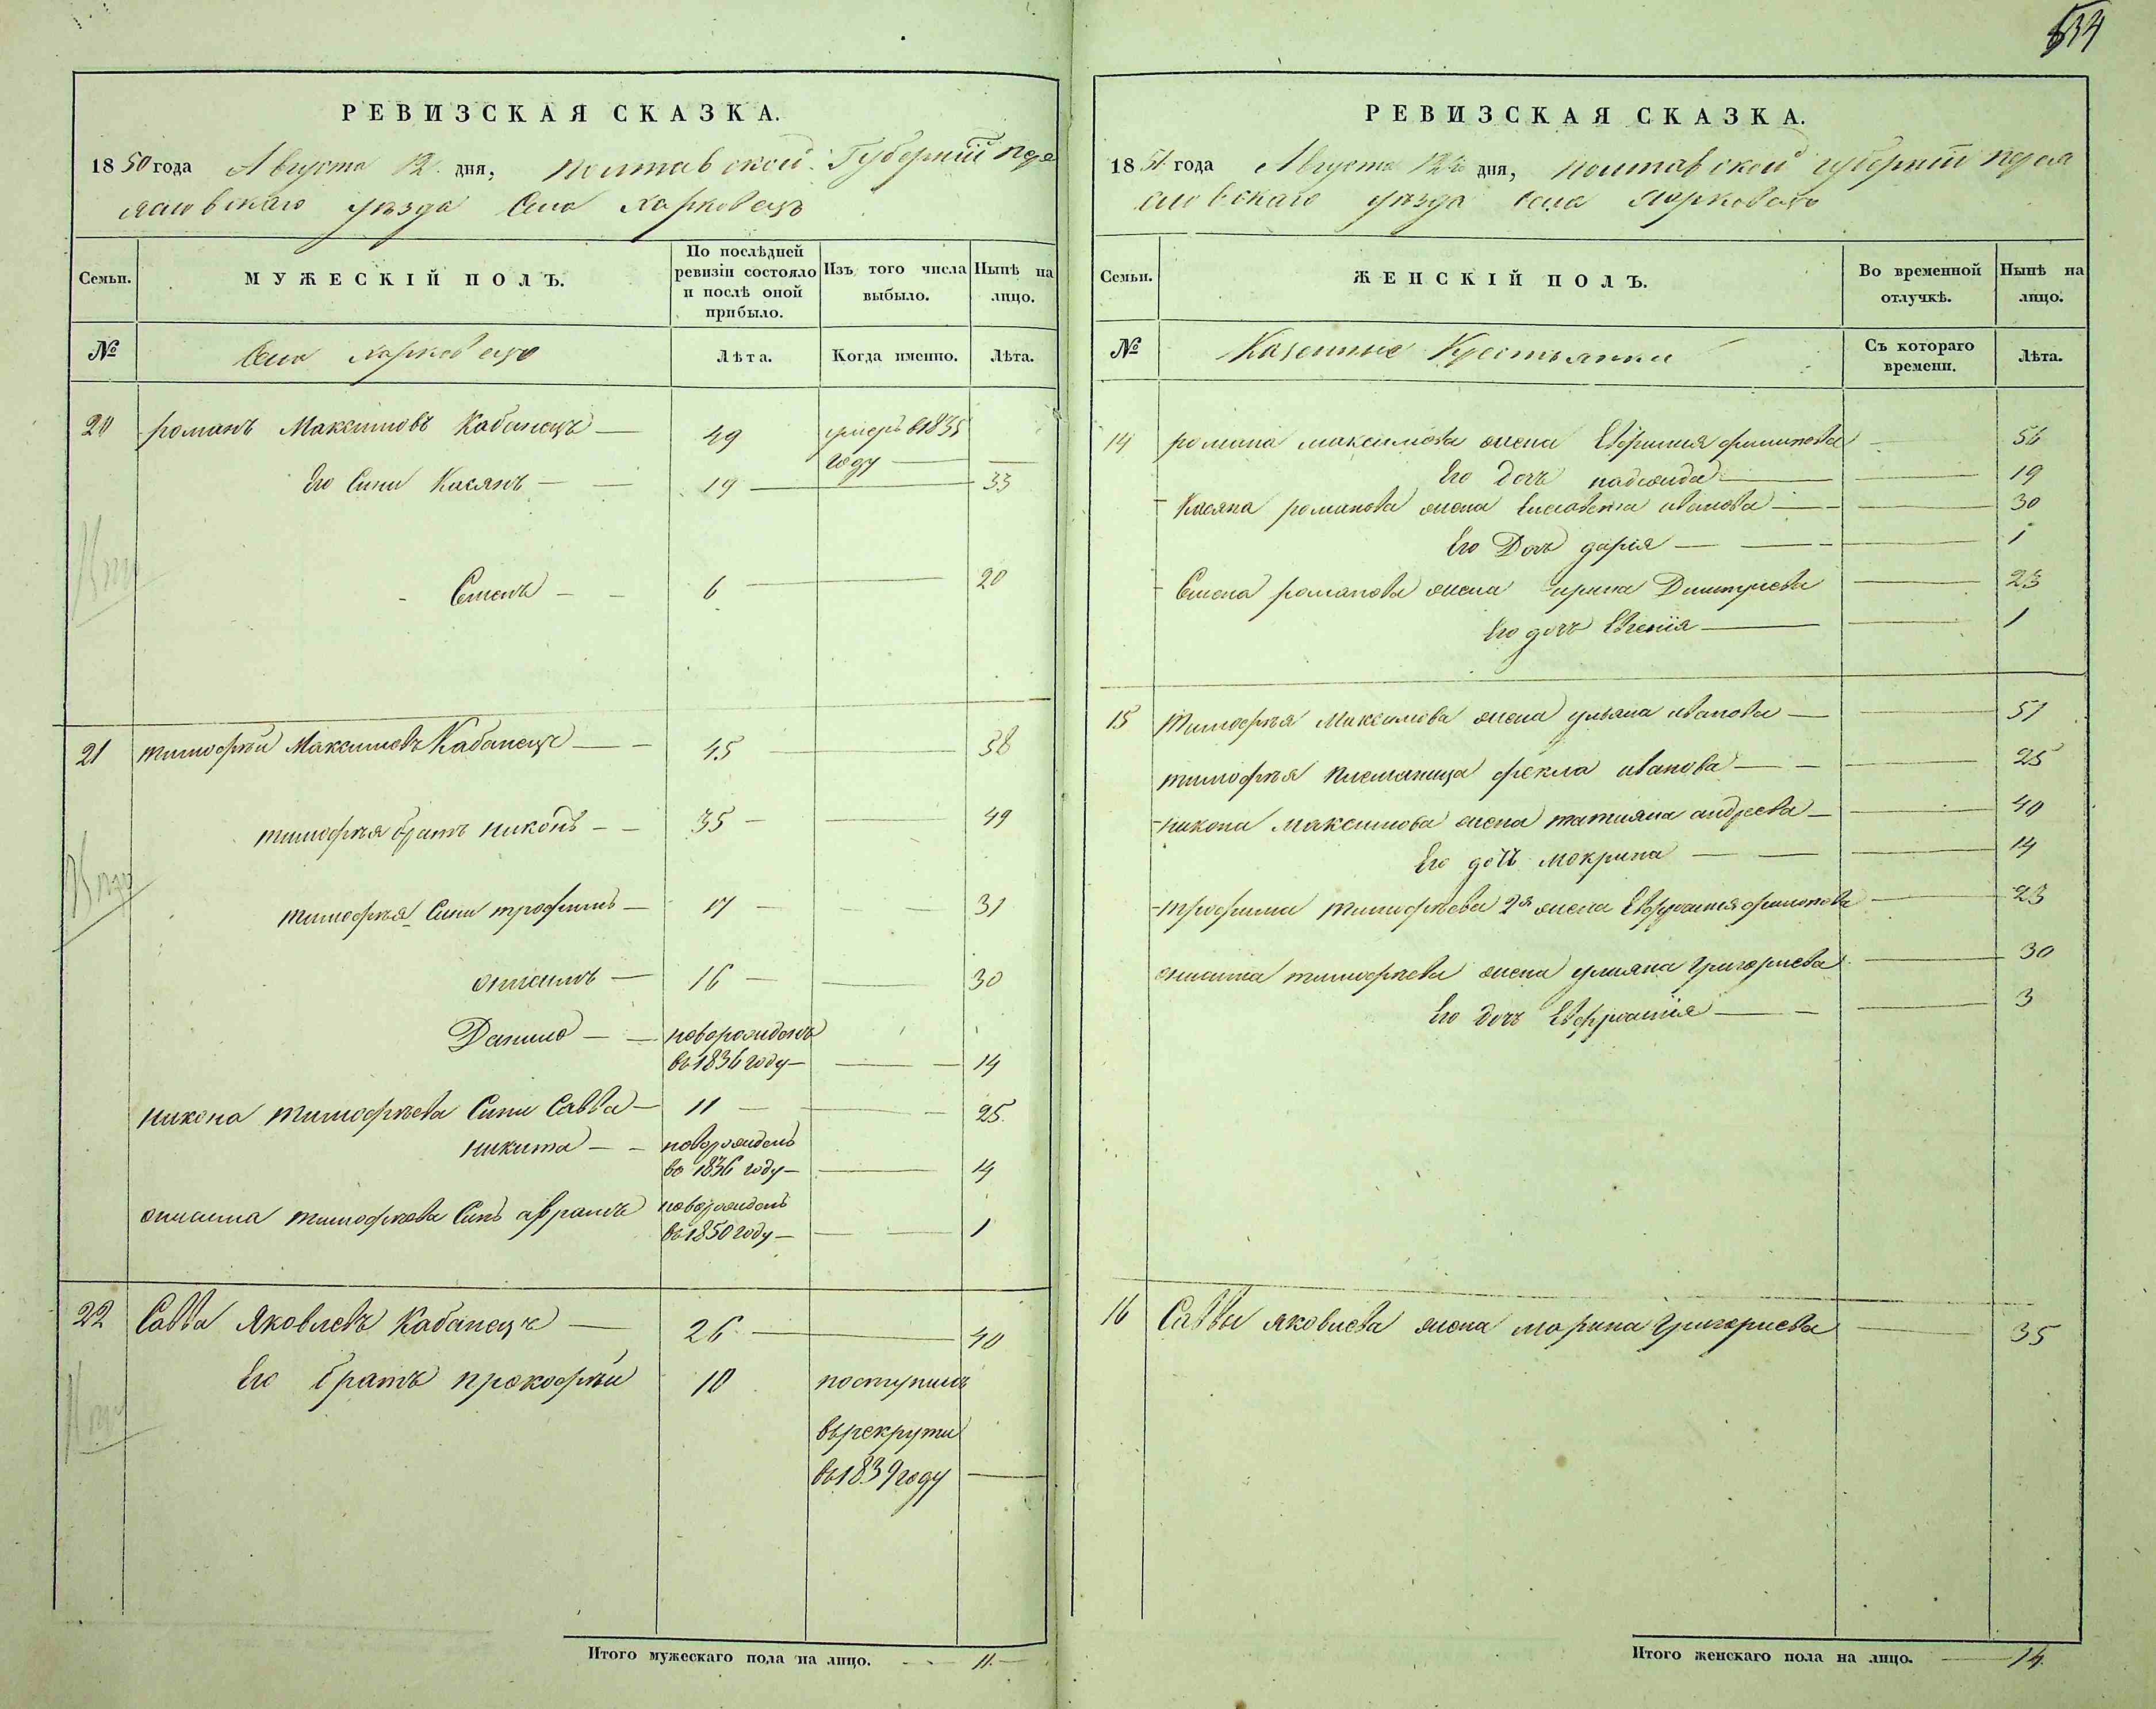 534
РЕВИЗСКАЯ СКАЗКА.
1850 года Августа 12 дня, Полтавской Губерніи Пере
яславскаго уезда Села Харковецъ
Семьи. МУЖЕСКІЙ ПОЛЪ. По послѣдней ревизіи состояло и послѣ оной прибыло. Изъ того числа выбыло. Нынѣ на лицо.
№ Села Харковецъ Лѣта. Когда именно. Лѣта.
20 романъ Максимовъ Кабанецъ — 49 умеръ в 1835 году —
Его Сини Касянъ — 19 — 33
Семенъ — 6 — 20
21 тимофѣй Максимовъ Кабанецъ — 45 — 58
тимофѣя братъ никонъ — 35 — 49
тимофѣя Сини трофимъ — 17 — 31
онисимъ — 16 — 30
Данило — новорожденъ
въ 1836 году — 14
никона тимофѣева Сини Савва — 11 — 25
никита — новорожденъ
во 1836 году — 14
онисима тимофѣева Синъ аврамъ новорожденъ
въ 1850 году — 1
22 Савва Яковлевъ Кабанецъ — 26 — 40
Его братъ прокофѣй 10 поступилъ
въ рекрути
въ 1839 году —
Итого мужескаго пола на лицо. — 11. —
РЕВИЗСКАЯ СКАЗКА.
18 года Августа 12 дня, Полтавской губерніи Перея
словскаго уезда Села Харковецъ
Семьи. ЖЕНСКІЙ ПОЛЪ. Во временной отлучкѣ. Нынѣ на лицо.
№ Казенные Крестьянки Съ котораго времени. Лѣта.
14 романа максимова жена филипова — 56
Его Дочъ надежда — 19
Касяна романова жена Елисавета иванова — 30
Его Дочъ дарія — 1
Семена романова жена ирина Димитриева — 23
Его дочъ Евгенія — 1
15 Тимофѣя Максимова жена уляна иванова — 51
тимофѣя племяница фекла иванова — 25
никона максимова жена татияна андреева — 40
Его дочъ мокрина — 14
трофима тимофѣева 2я жена Евфросинія филипова — 23
онисима тимофѣева жена улияна Григориева — 30
Его дочъ Евфросинія — 3
16 Саввы яковлева жена марина Григориева — 35
Итого женскаго пола на лицо. — 14.